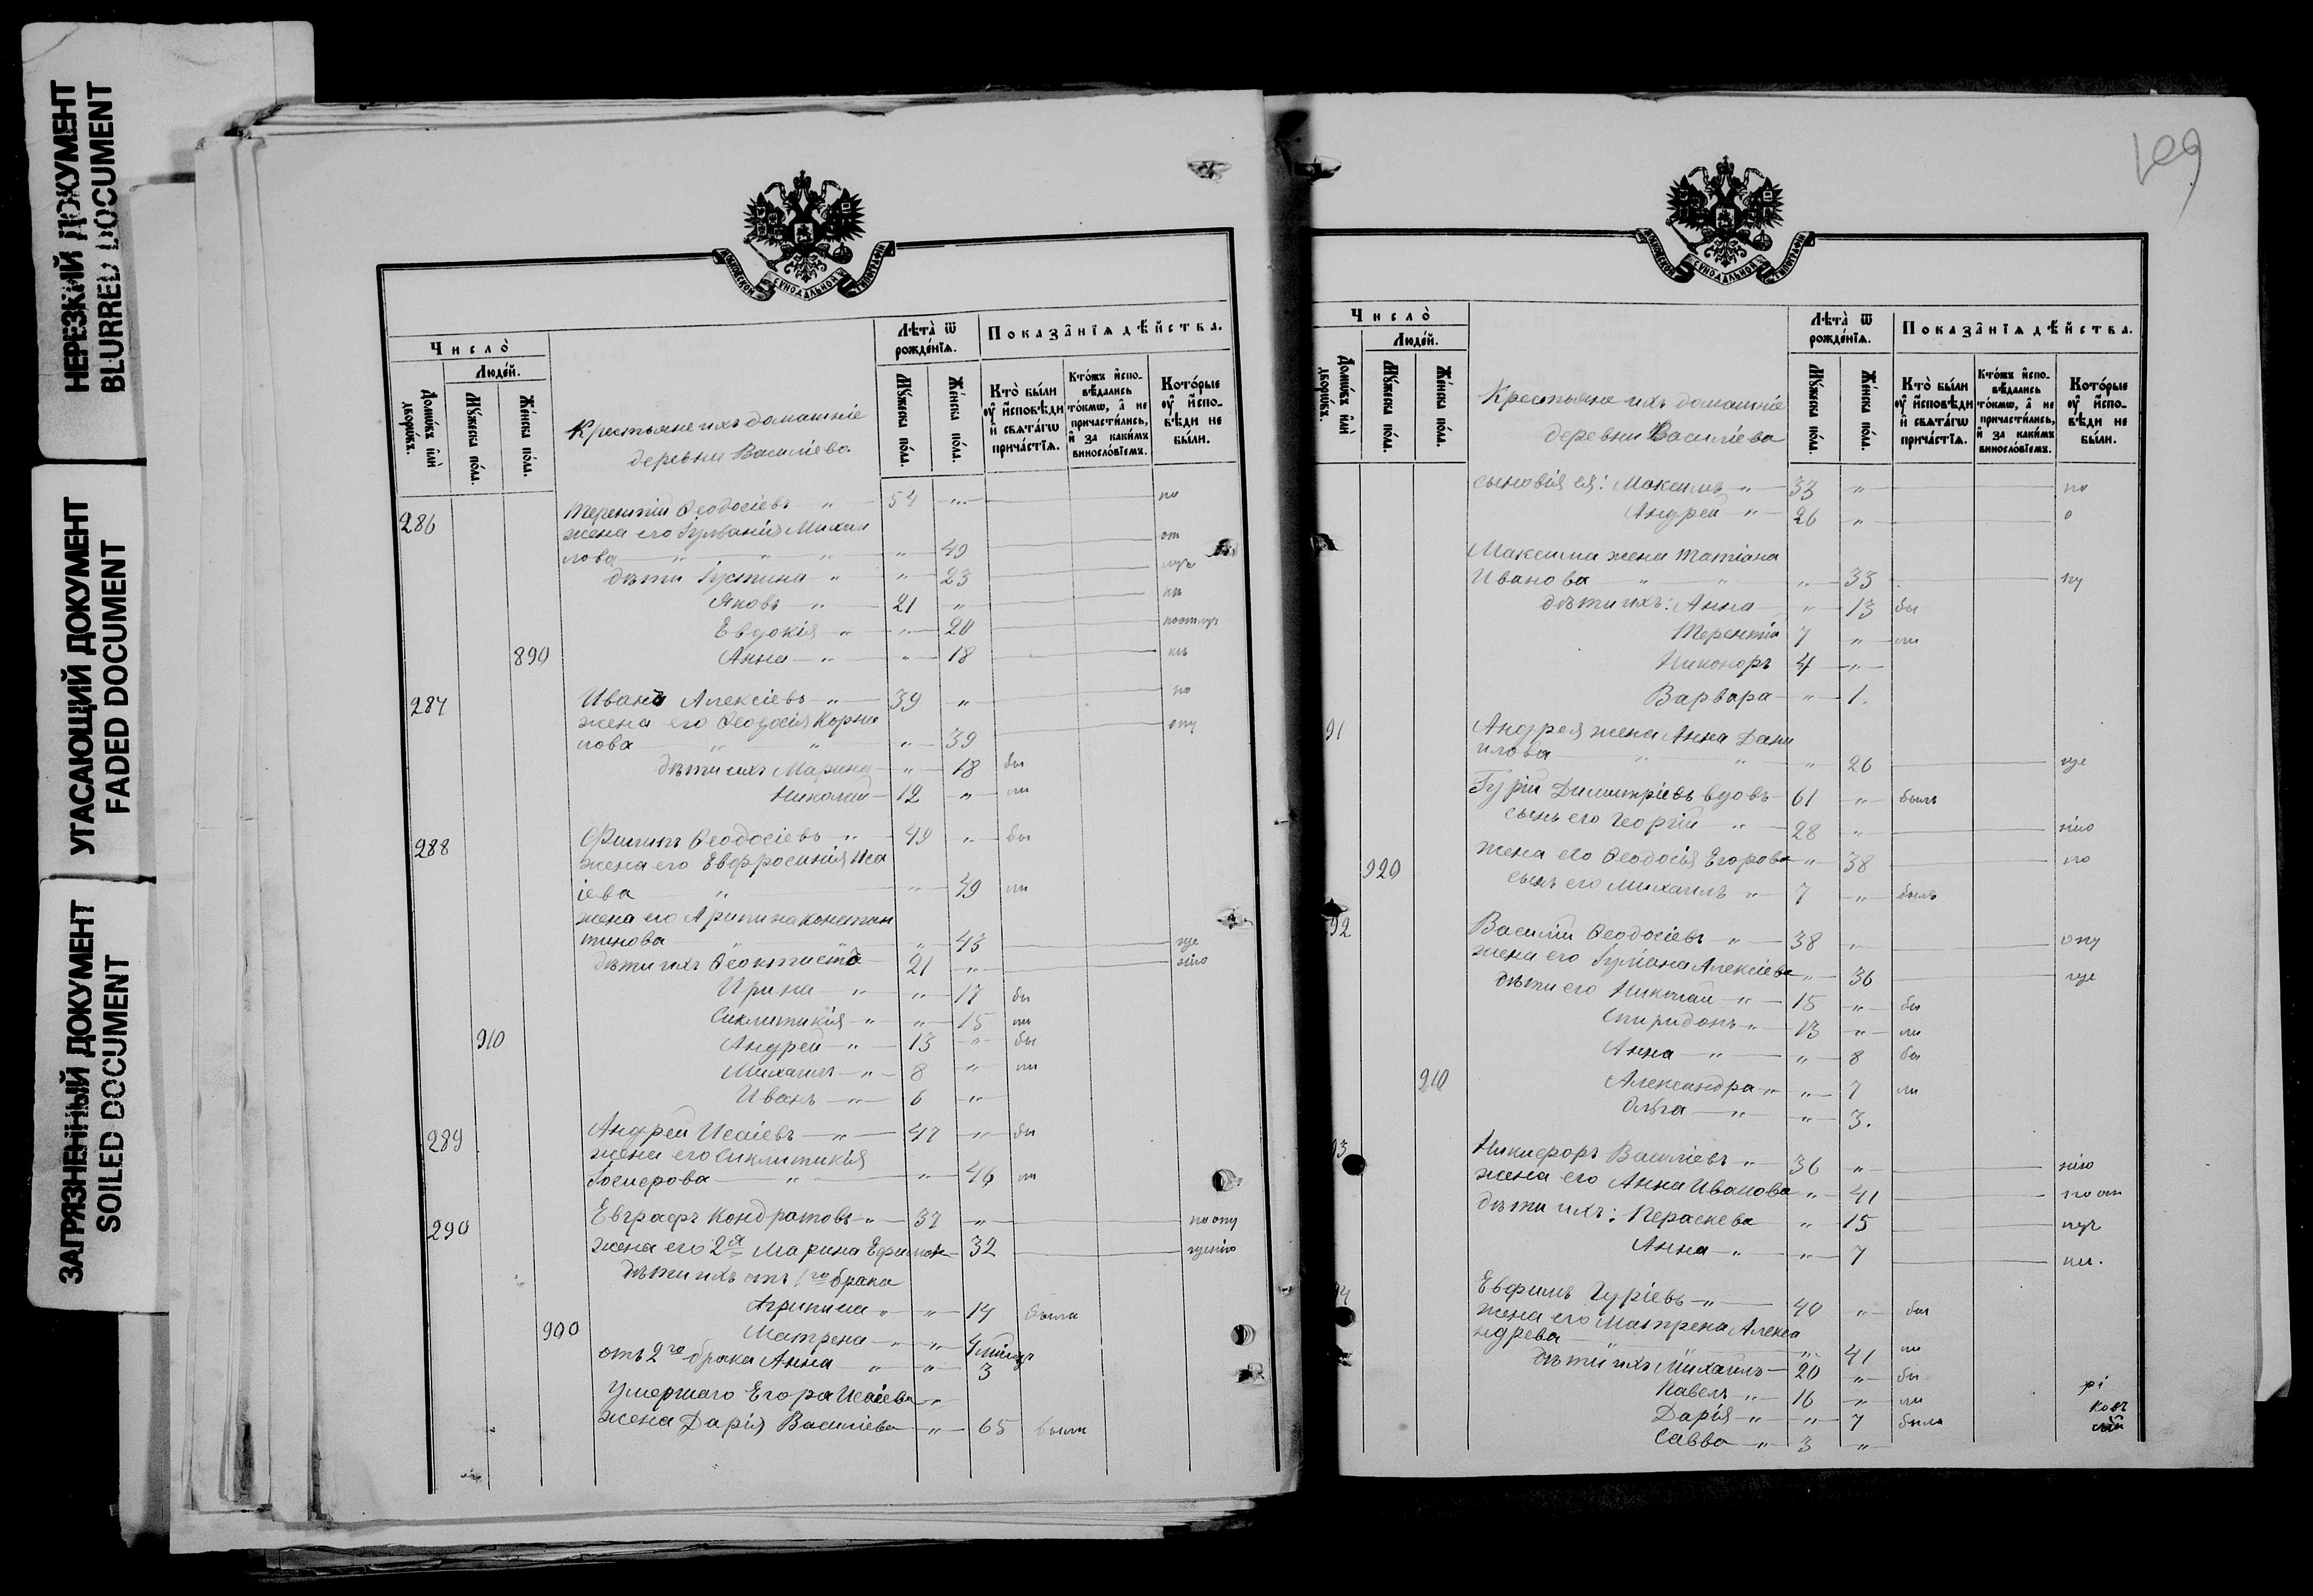 НЕРЕЗКИЙ ДОКУМЕНТ
BLURRED DOCUMENT
УГАСАЮЩИЙ ДОКУМЕНТ
FADED DOCUMENT
ЗАГРЯЗНЕННЫЙ ДОКУМЕНТ
SOILED DOCUMENT
МОСКОВСКОЙ СУНОДАЛЬНОЙ ТИПОГРАФІИ
Число̀
Люде́й.
Домѡ́въ и҆лѝ дворѡ́въ.
Мꙋ́жеска по́ла.
Же́нска по́ла.
Крестьяне ихъ домашніе
деревни Василіева.
Лѣта̀ ѿ рожде́нїѧ.
Мꙋ́жеска по́ла.
Же́нска по́ла.
Показа̑нїѧ дѣ́йства.
Кто̀ бы́ли ᲂу҆ и҆сповѣ́ди и҆ свѧта́гѡ прича́стїѧ.
Кто́жъ и҆спо­вѣ́дались то́кмѡ, а҆ не причасти́лись, и҆ за каки́мъ виносло́вїемъ.
Кото́рые ᲂу҆ и҆спо­вѣ́ди не бы́ли.
286 Терентій Ѳеодосіевъ " 54 " по
жена его Іуліанія Михаи
лова " " " " 49 от
дѣти Іустина " " 23
Яковъ " 21 "
Евдокія " " 20
890 Анна " " 18
287 Иванъ Алексіевъ " 39 " по
жена его Ѳеодосія Корни
лова " " " 39
дѣти ихъ Марина " 18 бы
Николай 12 " ли
288 Филипъ Ѳеодосіевъ " 49 " бы
жена его Евфросинія Иса
іева " " 49 ли
жена его Агрипина Констан
тинова " 43
дѣти ихъ Ѳеоктистъ 21 "
Ирина " " 17 бы
Сиклитикія " " 15 ли
910 Андрей " 13 " бы
Михаилъ " 8 " ли
Иванъ " 6 "
289 Андрей Исаіевъ " 47 " бы
жена его Сиклитикія
Іосифова " " 46 ли
290 Евграфъ Кондратовъ " 37 "
жена его 2я Марина Ефимова 32
дѣти ихъ отъ 1го брака
Агрипина " " 14 была
900 Матрена " "
отъ 2го брака Анна " " 3
Умершаго Егора Исаіева "
жена Дарія Василіева " 65 были
МОСКОВСКОЙ СУНОДАЛЬНОЙ ТИПОГРАФІИ
Число̀
Люде́й.
Домѡ́въ и҆лѝ дворѡ́въ.
Мꙋ́жеска по́ла.
Же́нска по́ла.
Крестьяне ихъ домашніе
деревни Василіева
Лѣта̀ ѿ рожде́нїѧ.
Мꙋ́жеска по́ла.
Же́нска по́ла.
Показа̑нїѧ дѣ́йства.
Кто̀ бы́ли ᲂу҆ и҆сповѣ́ди и҆ свѧта́гѡ прича́стїѧ.
Кто́жъ и҆спо­вѣ́дались то́кмѡ, а҆ не причасти́лись, и҆ за каки́мъ виносло́вїемъ.
Кото́рые ᲂу҆ и҆спо­вѣ́ди не бы́ли.
сыновія ея: Максимъ " 33 " по
Андрей " 26 " о
Максима жена Татіана
Иванова " " " 33
дѣти ихъ: Анна " 13 бы
Терентій 7 " ли
Никоноръ 4 "
Варвара " 1.
91 Андрея жена Анна Дани
илова " " " 26
Гурій Димитріевъ вдовъ 61 " былъ
сынъ его Георгій " 28 "
920 жена его Ѳеодосія Егорова " 38
сынъ его Михаилъ " 7 " былъ
92 Василій Ѳеодосіевъ " 38 "
жена его Іуліана Алексіева " 36
дѣти его Николай " 15 " бы
Спиридонъ " 13 " ли
Анна " " 8 бы
910 Александра " " 7 ли
Ольга " " 3.
93 Никифоръ Василіевъ " 36 "
жена его Анна Иванова " 41
дѣти ихъ: Параскева " 15
Анна " " 7
94 Евфимъ Гуріевъ " 40 " бы
жена его Матрена Алекса
ндрова " 41 ли
дѣти ихъ Михаилъ 20 " бы
Павелъ " 16 " ли
Дарія " " 7 была
Савва " 3 "